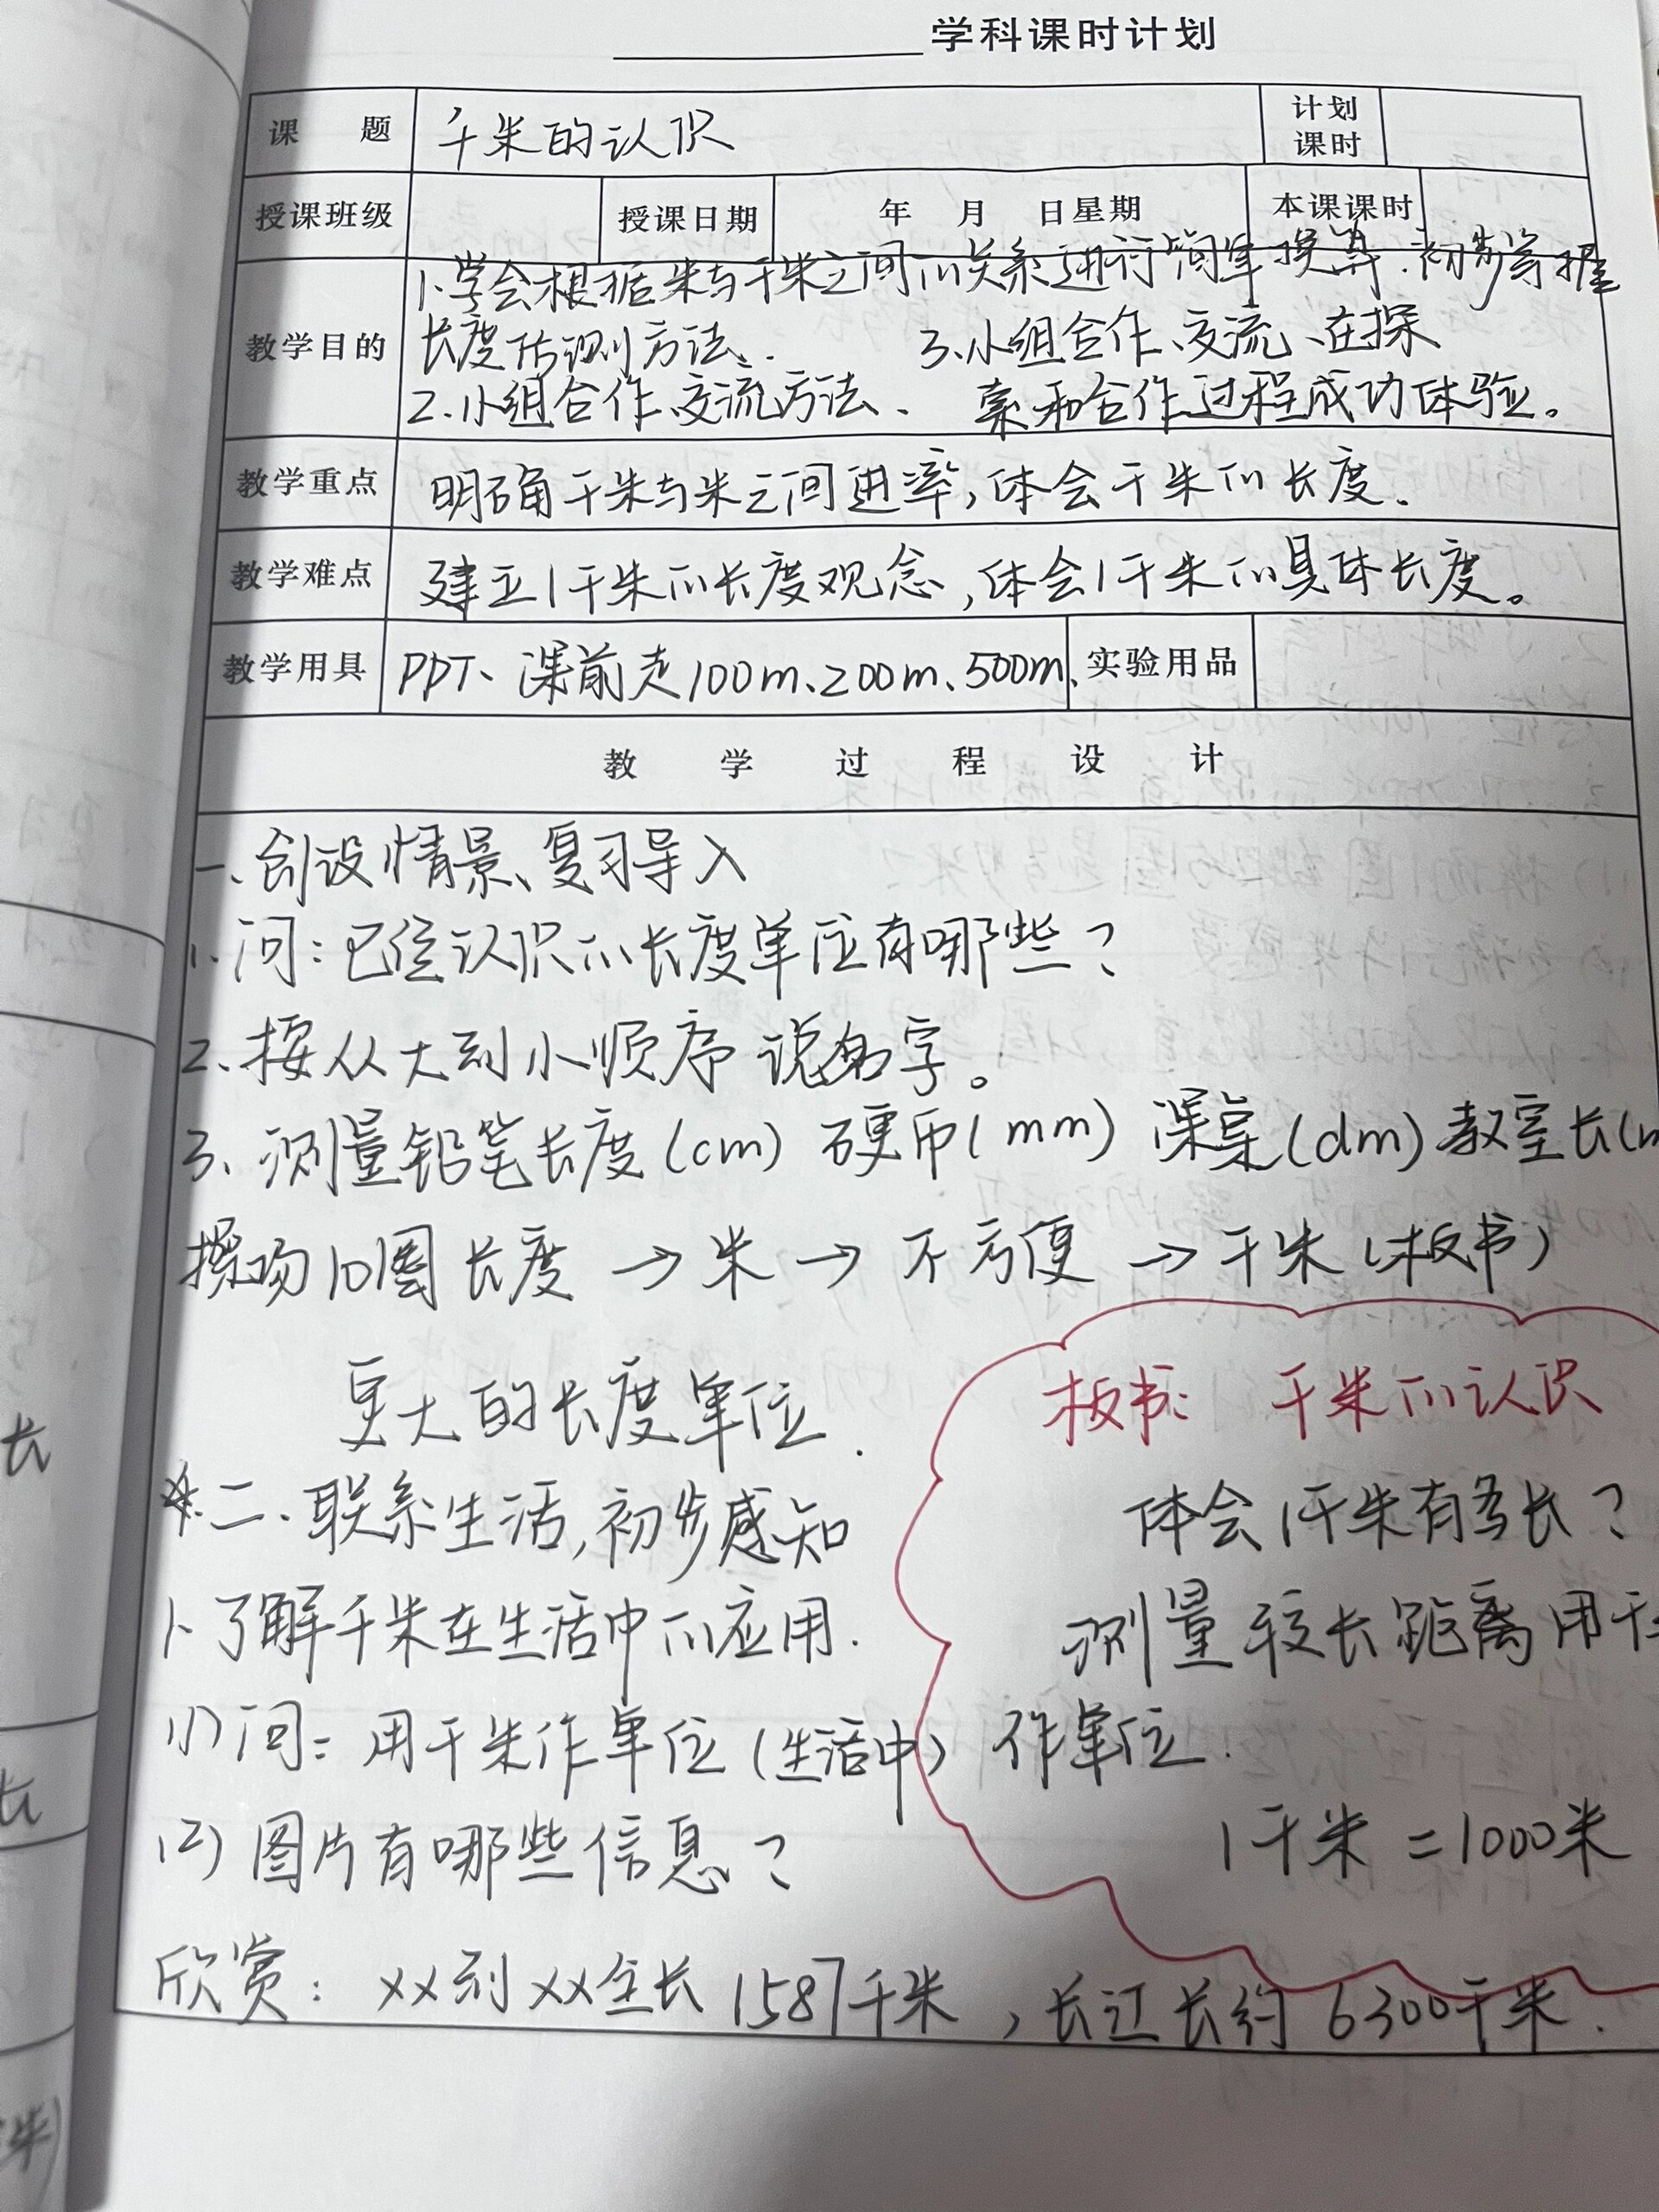 学科课时计划
课 题 千米的认识 计划课时
授课班级 授课日期 年 月 日星期 本课课时
教学目的 1.学会根据米与千米之间的关系进行简单换算.初步掌握
长度估测方法.
2.小组合作、交流方法、
3.小组合作、交流、在探
索和合作过程成功体验。
教学重点 明确千米与米之间进率,体会千米的长度.
教学难点 建立1千米的长度观念,体会1千米的具体长度。
教学用具 PPT、课前走100m、200m、500m、 实验用品
教 学 过 程 设 计
一、创设情景、复习导入
1.问:已经认识的长度单位有哪些?
2、按从大到小顺序说名字。
3、测量铅笔长度(cm) 硬币(mm) 课桌(dm) 教室长(m
操场10圈长度 → 米 → 不方便 → 千米(板书)
更大的长度单位.
二、联系生活,初步感知
1.了解千米在生活中的应用.
(1)问:用千米作单位(生活中)
(2)图片有哪些信息?
欣赏: XX到XX全长1587千米,长江长约6300千米.
板书: 千米的认识
体会1千米有多长?
测量较长距离用千
作单位.
1千米=1000米
长
长
米)